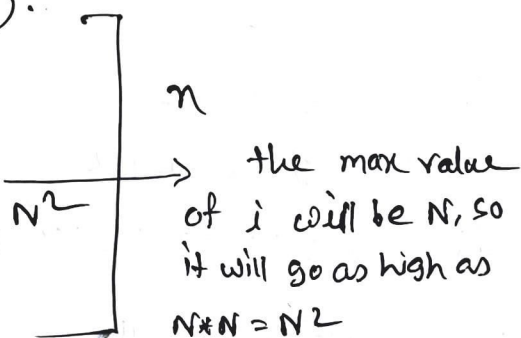 ).
n
the max value
N² of i will be N, so
it will go as high as
N*N = N²